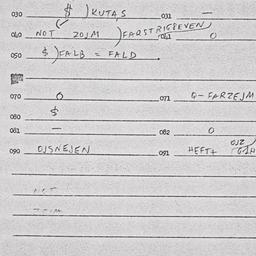 030 $ ) KUTAS 031 —
040 NOT ZOJM ) FARSTRIGREVEN 041 O
050 $ ) FALB = FALD
070 O 071 G-FARZEJM
080 $
081 — 082 O
090 OJSNEJEN 091 HEFT+